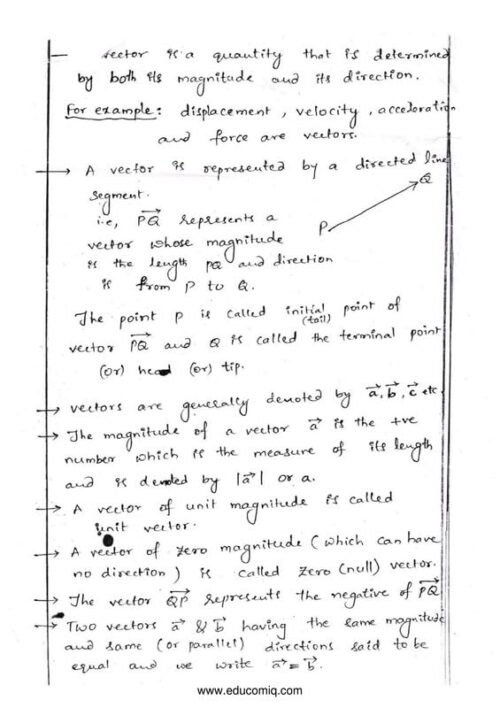 — vector is a quantity that is determined
by both its magnitude and its direction.
For example: displacement, velocity, acceloration
and force are vectors.
→ A vector is represented by a directed line
segment.
i.e, $\overrightarrow{PQ}$ represents a
vector whose magnitude
is the length PQ and direction
is from P to Q.
P
Q
The point P is called initial (tail) point of
vector $\overrightarrow{PQ}$ and Q is called the terminal point
(or) head (or) tip.
→ vectors are generally denoted by $\vec{a}, \vec{b}, \vec{c}$ etc
→ The magnitude of a vector $\vec{a}$ is the +ve
number which is the measure of its length
and is denoted by $|\vec{a}|$ or a.
→ A vector of unit magnitude is called
unit vector.
→ A vector of zero magnitude (which can have
no direction) is called zero (null) vector.
→ The vector $\overrightarrow{QP}$ represents the negative of $\overrightarrow{PQ}$
→ Two vectors $\vec{a}$ & $\vec{b}$ having the same magnitude
and same (or parallel) directions said to be
equal and we write $\vec{a} = \vec{b}$.
www.educomiq.com